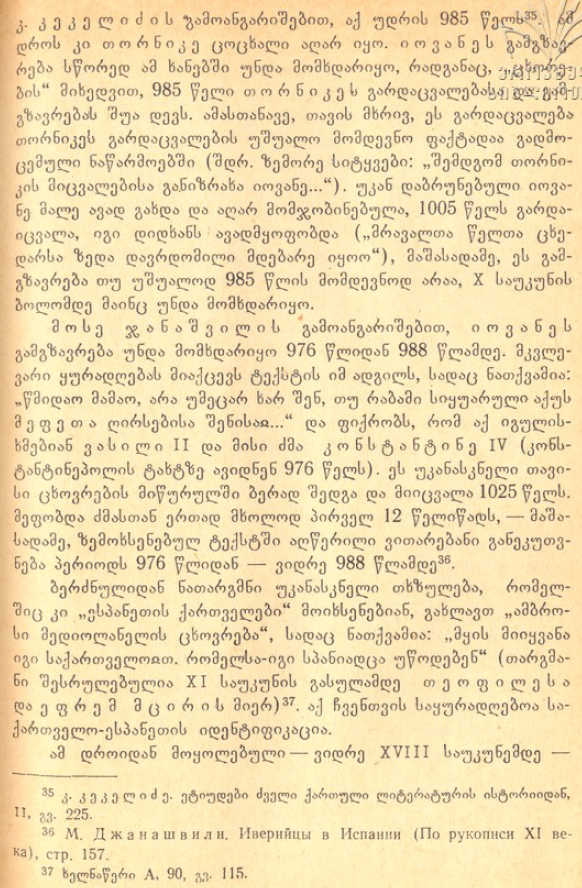 კ. კეკელიძის გამოანგარიშებით, აქ უდრის 985 წელს³⁵. ამ
დროს კი თორნიკე ცოცხალი აღარ იყო. იოვანეს გამგზავ-
რება სწორედ ამ ხანებში უნდა მომხდარიყო, რადგანაც, „ცხორე-
ბის“ მიხედვით, 985 წელი თორნიკეს გარდაცვალებასა და გამ-
გზავრებას შუა დევს. ამასთანავე, თავის მხრივ, ეს გარდაცვალება
თორნიკეს გარდაცვალების უშუალო მომდევნო ფაქტადაა გადმო-
ცემული ნაწარმოებში (შდრ. ზემორე სიტყვები: „შემდგომ თორნი-
კის მიცვალებისა განიზრახა იოვანე...“). უკან დაბრუნებული იოვა-
ნე მალე ავად გახდა და აღარ მომჯობინებულა, 1005 წელს გარდა-
იცვალა, იგი დიდხანს ავადმყოფობდა („მრავალთა წელთა ცხე-
დარსა ზედა დავრდომილი მდებარე იყოო“), მაშასადამე, ეს გამ-
გზავრება თუ უშუალოდ 985 წლის მომდევნოდ არაა, X საუკუნის
ბოლომდე მაინც უნდა მომხდარიყო.
მოსე ჯანაშვილის გამოანგარიშებით, იოვანეს
გამგზავრება უნდა მომხდარიყო 976 წლიდან 988 წლამდე. მკვლე-
ვარი ყურადღებას მიაქცევს ტექსტის იმ ადგილს, სადაც ნათქვამია:
„წმიდაო მამაო, არა უმეცარ ხარ შენ, თუ რაბამი სიყუარული აქუს
მეფეთა ღირსებისა შენისაჲ...“ და ფიქრობს, რომ აქ იგულის-
ხმებიან ვასილი II და მისი ძმა კონსტანტინე IV (კონს-
ტანტინეპოლის ტახტზე ავიდნენ 976 წელს). ეს უკანასკნელი თავი-
სი ცხოვრების მიწურულში ბერად შედგა და მიიცვალა 1025 წელს.
მეფობდა ძმასთან ერთად მხოლოდ პირველ 12 წელიწადს, — მაშა-
სადამე, ზემოხსენებულ ტექსტში აღწერილი ვითარებანი განეკუთვ-
ნება პერიოდს 976 წლიდან — ვიდრე 988 წლამდე³⁶.
ბერძნულიდან ნათარგმნი უკანასკნელი თხზულება, რომელ-
შიც კი „ესპანეთის ქართველები“ მოიხსენებიან, გახლავთ „ამბრო-
სი მედიოლანელის ცხოვრება“, სადაც ნათქვამია: „მყის მიიყვანა
იგი საქართველოჲთ. რომელსა-იგი სპანიადცა უწოდებენ“ (თარგმა-
ნი შესრულებულია XI საუკუნის გასულამდე თეოფილესა
და ეფრემ მცირის მიერ)³⁷. აქ ჩვენთვის საყურადღებოა სა-
ქართველო-ესპანეთის იდენტიფიკაცია.
ამ დროიდან მოყოლებული — ვიდრე XVIII საუკუნემდე —
³⁵ კ. კეკელიძე. ეტიუდები ძველი ქართული ლიტერატურის ისტორიიდან,
II, გვ. 225.
³⁶ М. Джанашвили. Иверийцы в Испании (По рукописи XI ве-
ка), стр. 157.
³⁷ ხელნაწერი A, 90, გვ. 115.